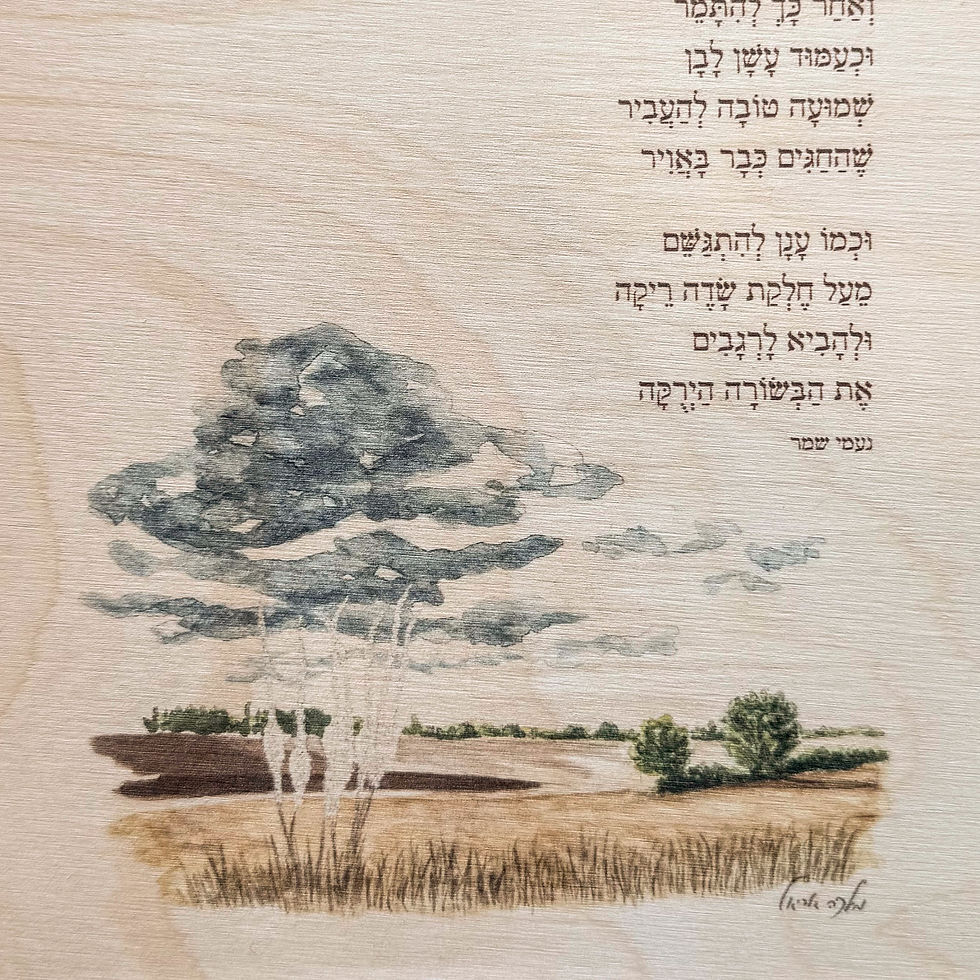 וְאַחַר כָּךְ לְהִתַּמֵּר
וּכְעַמּוּד עָשָׁן לָבָן
שְׁמוּעָה טוֹבָה לְהַעֲבִיר
שֶׁהַחַגִּים כְּבָר בָּאֲוִיר
וּכְמוֹ עָנָן לְהִתְגַּשֵּׁם
מֵעַל חֶלְקַת שָׂדֶה רֵיקָה
וּלְהָבִיא לָרְגָבִים
אֶת הַבְּשׂוֹרָה הַיְרֻקָּה
נעמי שמר
מלכה אריאל